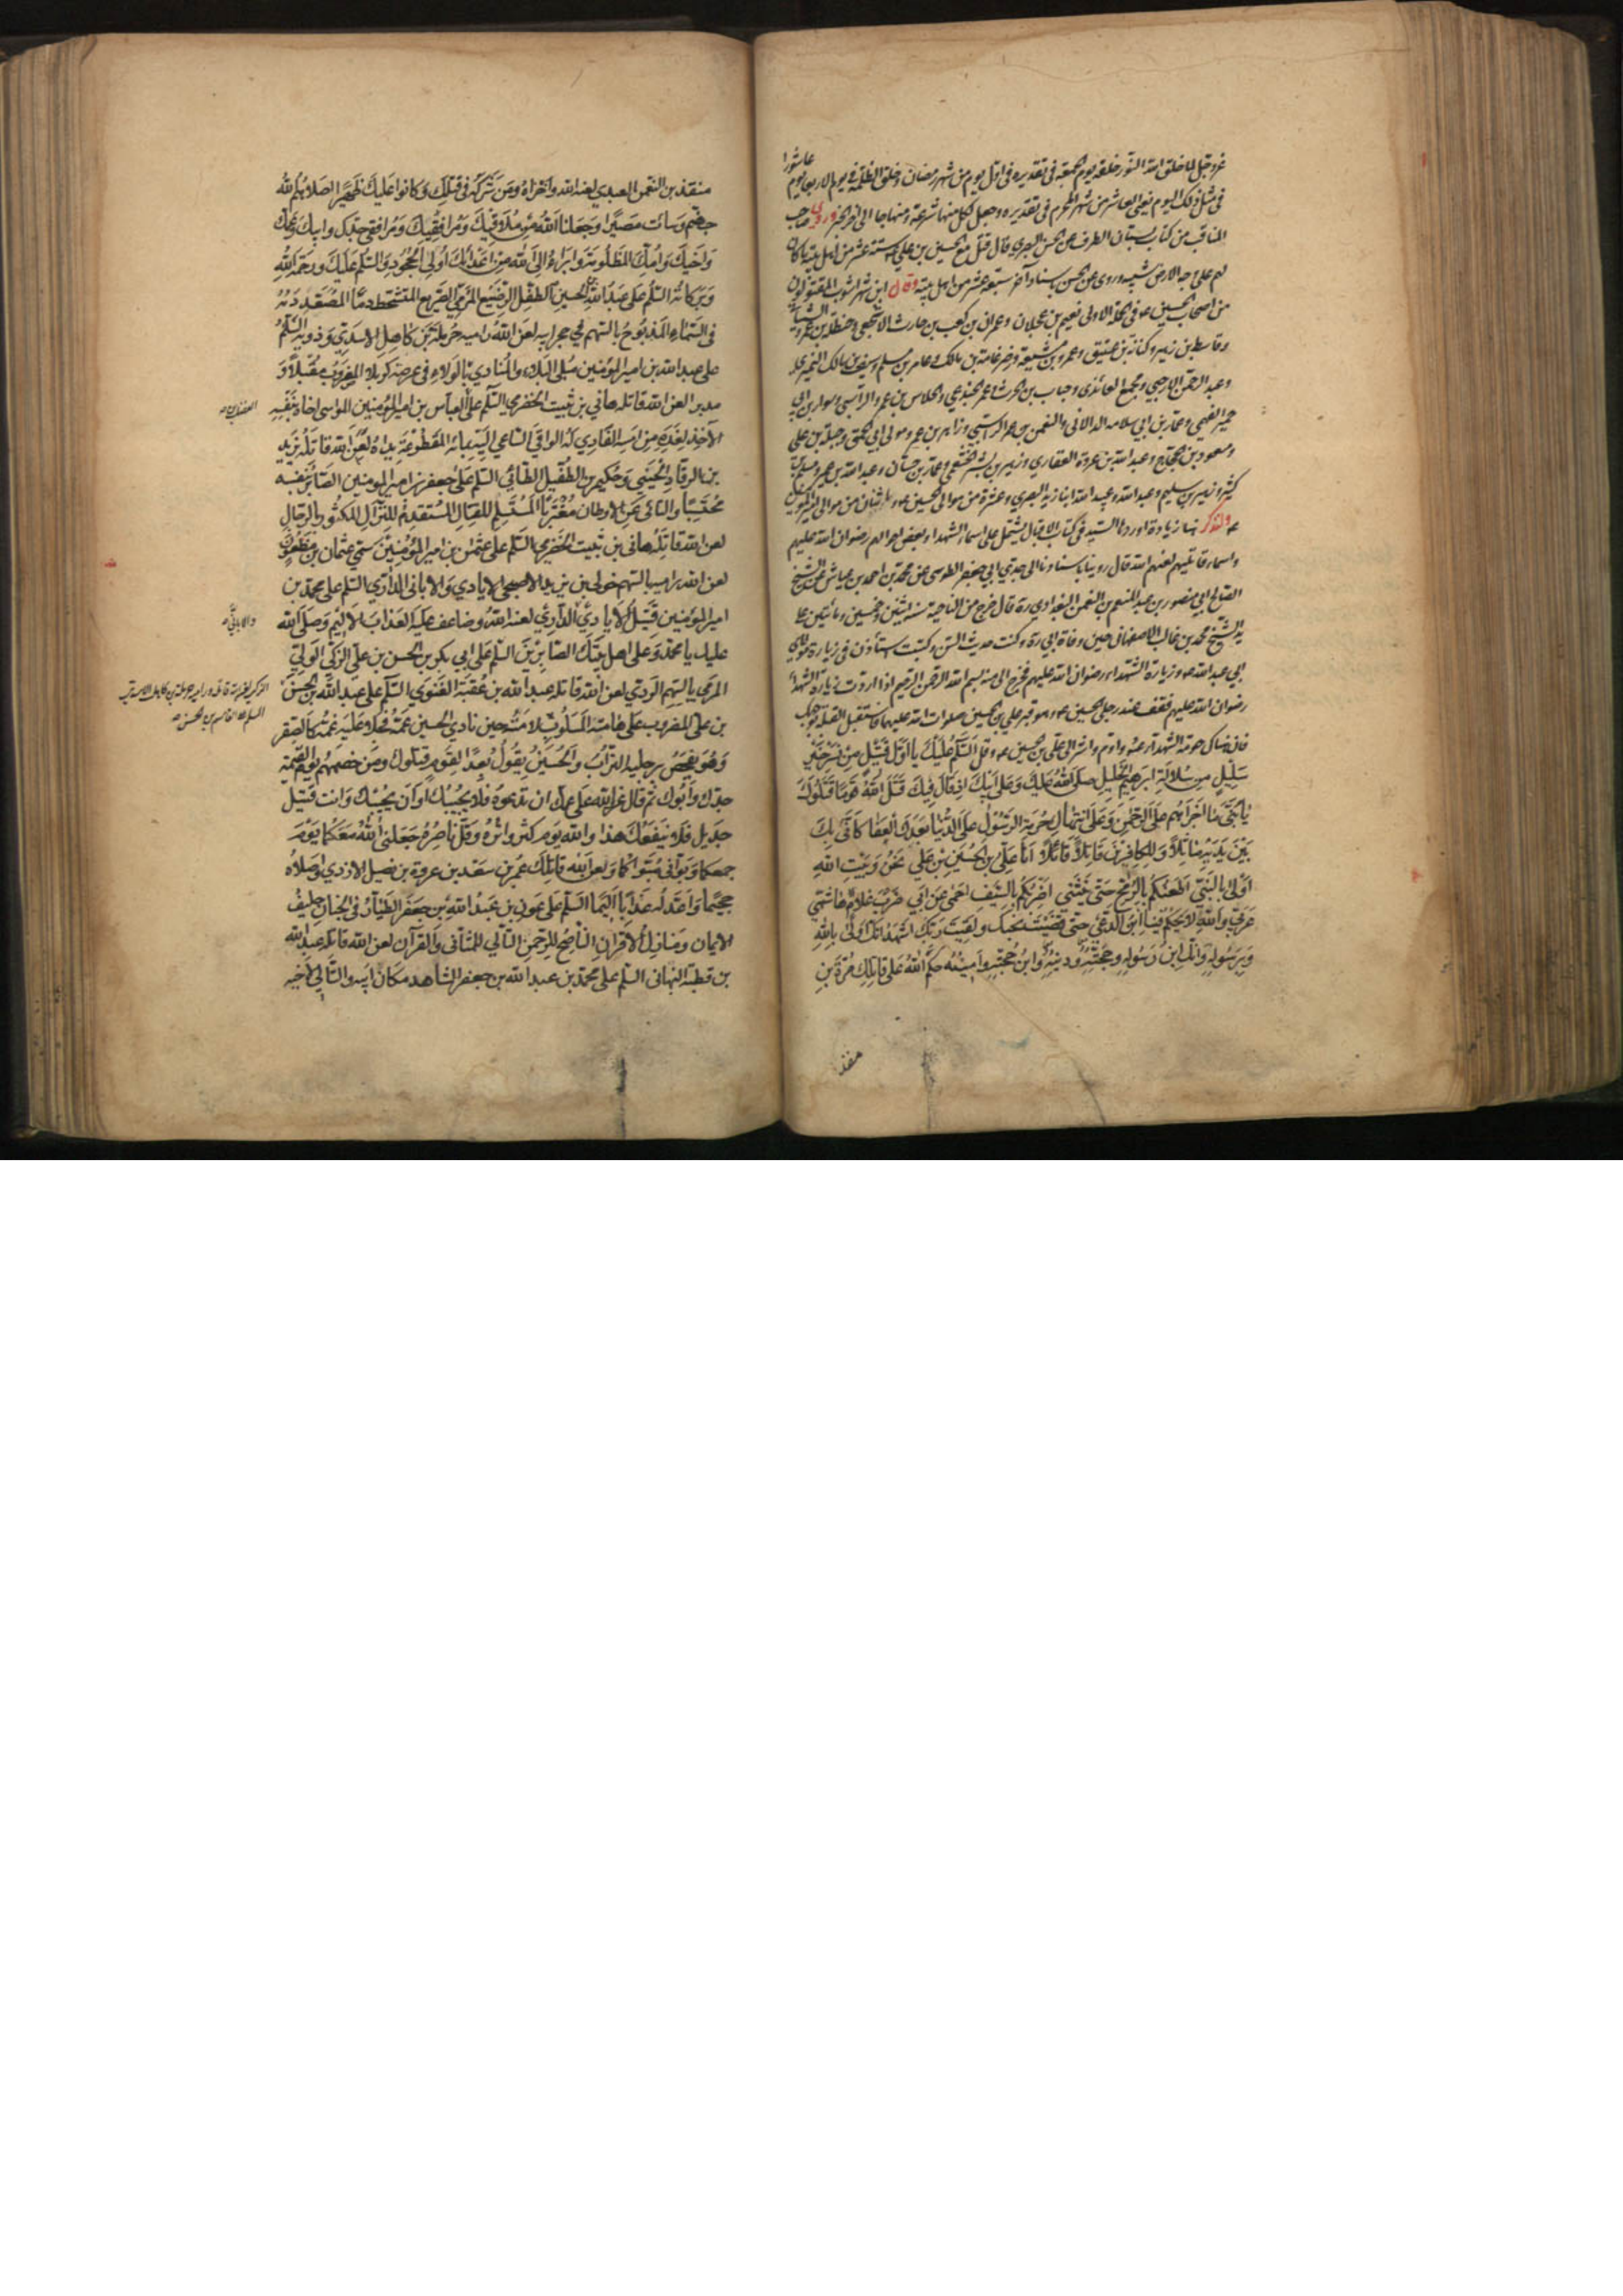 عاشورا
عز وجل لما خلق الله النور خلقه يوم الجمعة في تقديره في اول يوم من شهر رمضان وخلق الظلمة في يوم الاربعا يوم
في مثل ذلك اليوم يعني العاشر من شهر المحرم في تقديره وجعل لكل منهما شرعة ومنهاجا الى اخر الخبر وروى صاحب
المناقب من كتاب بستان الطرف عن الحسن البصري قال قتل مع الحسين بن علي ستة عشر من اهل بيته ما كان
لهم على وجه الارض شبيه وروى عن الحسن باسناد آخر سبعة عشر من اهل بيته وقال ابن شهر اشوب المقتولون
من اصحاب الحسين ع في الحملة الاولى نعيم بن عجلان وعمران بن كعب بن حارث الاشجعي وحنظلة بن عمرو الشيباني
وقاسط بن زهير وكنانة بن عتيق وعمرو بن مشيعة وضرغامة بن مالك وعامر بن مسلم وسيف بن مالك النميري
وعبد الرحمن الارحبي ومجمع العائذي وحباب بن الحرث وعمرو الجندعي والحلاس بن عمرو الراسبي وسوار بن ابي
حمير الفهمي وعمار بن ابي سلامة الدالاني والنعمن بن عمرو الراسبي وزاهر بن عمرو مولى ابي الحمق وجبلة بن علي
ومسعود بن الحجاج وعبد الله بن عروة الغفاري وزهير بن بشر الخثعمي وعمار بن حسان وعبد الله بن عمير ومسلم بن
كثير وزهير بن سليم وعبد الله وعبيد الله ابنا زيد البصري وعشرة من موالي الحسين ع واثنان من موالي امير المؤمنين
ع ولنذكر هنا زيارة اوردها السيد في كتاب الاقبال يشتمل على اسماء الشهداء وبعض احوالهم رضوان الله عليهم
واسماء قاتليهم لعنهم الله قال روينا باسنادنا الى جدي ابي جعفر الطوسي عن محمد بن احمد بن عياش عن الشيخ
الصالح ابي منصور بن عبد المنعم بن النعمن البغدادي ره قال خرج من الناحية سنة اثنتين وخمسين ومائتين على
يد الشيخ محمد بن غالب الاصفهاني حين وفاة ابي ره وكنت حديث السن وكتبت استأذن في زيارة مولاي
ابي عبد الله ع وزيارة الشهداء رضوان الله عليهم فخرج الي منه بسم الله الرحمن الرحيم اذا اردت زيارة الشهداء
رضوان الله عليهم فقف عند رجلي الحسين ع وهو قبر علي بن الحسين صلوات الله عليهما فاستقبل القبلة بوجهك
فان هناك حومة الشهداء ع واوم واشر الى علي بن الحسين ع وقل السلم عليك يا اول قتيل من نسل خير
سليل من سلالة ابرهيم الخليل صلى الله عليك وعلى ابيك اذ قال فيك قتل الله قوما قتلوك
يا بني ما اجراهم على الرحمن وعلى انتهاك حرمة الرسول على الدنيا بعدك العفا كاني بك
بين يديه ماثلا وللكافرين قاتلا قائلا انا علي بن الحسين بن علي نحن وبيت الله
اولى بالنبي اطعنكم بالرمح حتى ينثني اضربكم بالسيف احمي عن ابي ضرب غلام هاشمي
عربي والله لا يحكم فينا ابن الدعي حتى قضيت نحبك ولقيت ربك اشهد انك اولى بالله
وبرسوله وانك ابن رسوله وحجته ودينه وابن حجته وامينه حكم الله على قاتلك مرة بن
منقذ
منقذ بن النعمن العبدي لعنه الله واخزاه ومن شركه في قتلك وكانوا عليك ظهيرا اصلاهم الله
جهنم وساءت مصيرا وجعلنا الله من ملاقيك ومرافقيك ومرافقي جدك وابيك وعمك
واخيك وامك المظلومة وابرء الى الله من اعدائك اولي الجحود والسلم عليك ورحمة الله
وبركاته السلم على عبد الله بن الحسين الطفل الرضيع المرمي الصريع المتشحط دما المصعد دمه
في السماء المذبوح بالسهم في حجر ابيه لعن الله راميه حرملة بن كاهل الاسدي وذويه السلم
على عبد الله بن امير المؤمنين مبلى البلاء والمنادي بالولاء في عرصة كربلا المضروب مقبلا و
مدبرا لعن الله قاتله هاني بن ثبيت الحضرمي السلم على العباس بن امير المؤمنين المواسي اخاه بنفسه
الآخذ لغده من امسه الفادي له الواقي الساعي اليه بمائه المقطوعة يداه لعن الله قاتله يزيد
بن الرقاد الحيتي وحكيم بن الطفيل الطائي السلم على جعفر بن امير المؤمنين الصابر بنفسه
محتسبا والنائي عن الاوطان مغتربا المستسلم للقتال المستقدم للنزال المكثور بالرجال
لعن الله قاتله هاني بن ثبيت الحضرمي السلم على عثمان بن امير المؤمنين سمي عثمان بن مظعون
لعن الله راميه بالسهم خولي بن يزيد الاصبحي الايادي والاباني الدارمي السلم على محمد بن
امير المؤمنين قتيل الايادي الدارمي لعنه الله وضاعف عليه العذاب الاليم وصلى الله
عليك يا محمد وعلى اهل بيتك الصابرين السلم على ابي بكر بن الحسن بن علي الزكي الولي
المرمي بالسهم الردي لعن الله قاتله عبد الله بن عقبة الغنوي السلم على عبد الله بن الحسن
بن علي المضروب على هامته المسلوب لامته حين نادى الحسين عمه فجلا عليه عمه كالصقر
وهو يفحص برجليه التراب والحسين يقول بعدا لقوم قتلوك ومن خصمهم يوم القيمة
جدك وابوك ثم قال عز والله على عمك ان تدعوه فلا يجيبك او ان يجيبك وانت قتيل
جديل فلا ينفعك هذا والله يوم كثر واتره وقل ناصره جعلني الله معكما يوم
جمعكما وبوأني مبوأكما ولعن الله قاتلك عمر بن سعد بن عروة بن نفيل الازدي واصلاه
جحيما واعد له عذابا اليما السلم على عون بن عبد الله بن جعفر الطيار في الجنان حليف
الايمان ومنازل الاقران الناصح للرحمن التالي للمثاني والقرآن لعن الله قاتله عبد الله
بن قطبة النبهاني السلم على محمد بن عبد الله بن جعفر الشاهد مكان ابيه والتالي لاخيه
والاباني
السلم على القاسم بن الحسن